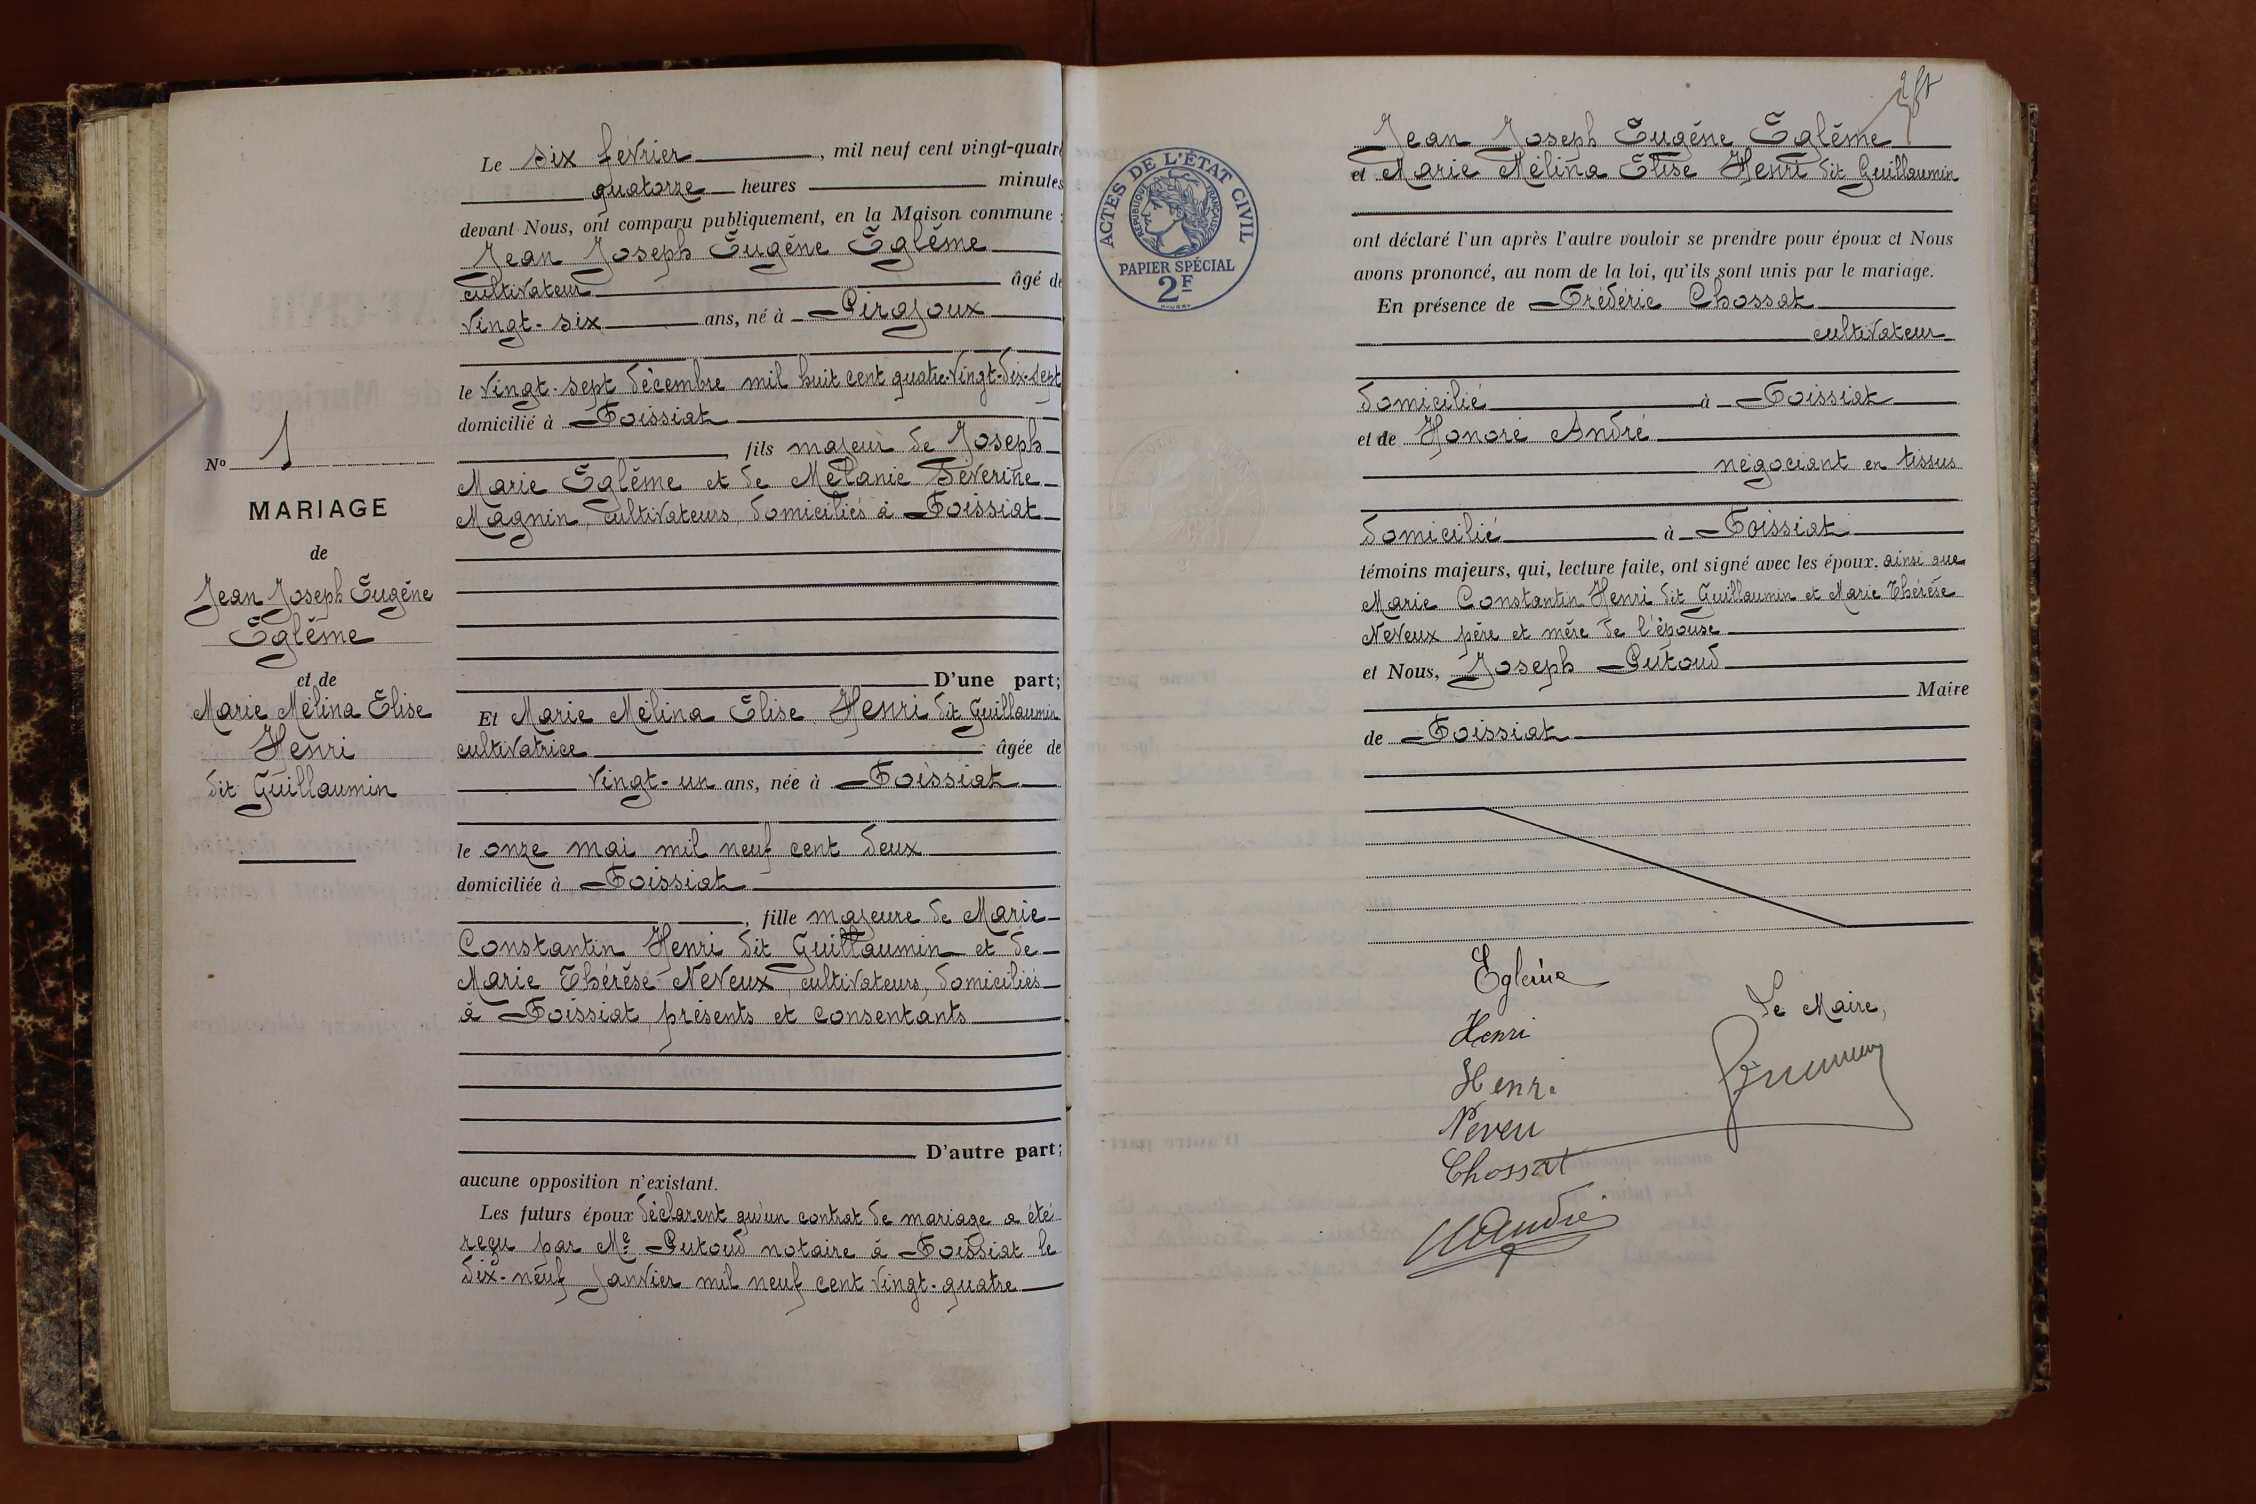 Nº 1
MARIAGE
de
Jean Joseph Eugène
Eglème
et de
Marie Mélina Elise
Henri
dit Guillaumin
Le six février, mil neuf cent vingt-quatre
quatorze heures minutes
devant Nous, ont comparu publiquement, en la Maison commune :
Jean Joseph Eugène Eglème
cultivateur âgé de
vingt-six ans, né à Pirajoux
le vingt-sept décembre mil huit cent quatre-vingt-dix-sept
domicilié à Foissiat
, fils majeur de Joseph
Marie Eglème et de Mélanie Séverine
Magnin, cultivateurs, domiciliés à Foissiat
D'une part;
Et Marie Mélina Elise Henri dit Guillaumin
cultivatrice âgée de
vingt-un ans, née à Foissiat
le onze mai mil neuf cent deux
domiciliée à Foissiat
, fille majeure de Marie
Constantin Henri dit Guillaumin et de
Marie Thérèse Neveux, cultivateurs, domiciliés
à Foissiat, présents et consentants
D'autre part;
aucune opposition n'existant.
Les futurs époux déclarent qu'un contrat de mariage a été
reçu par Me Putoud notaire à Foissiat le
dix-neuf janvier mil neuf cent vingt-quatre
ACTES DE L'ÉTAT CIVIL
RÉPUBLIQUE FRANÇAISE
PAPIER SPÉCIAL
2F
Jean Joseph Eugène Eglème
et Marie Mélina Elise Henri dit Guillaumin
ont déclaré l'un après l'autre vouloir se prendre pour époux et Nous
avons prononcé, au nom de la loi, qu'ils sont unis par le mariage.
En présence de Frédéric Chossat
cultivateur
domicilié à Foissiat
et de Honoré André
négociant en tissus
domicilié à Foissiat
témoins majeurs, qui, lecture faite, ont signé avec les époux, ainsi que
Marie Constantin Henri dit Guillaumin et Marie Thérèse
Neveux père et mère de l'épouse
et Nous, Joseph Putoud
Maire
de Foissiat
Eglème
Henri
Le Maire,
Henri
Neveu
Chossat
HAndré